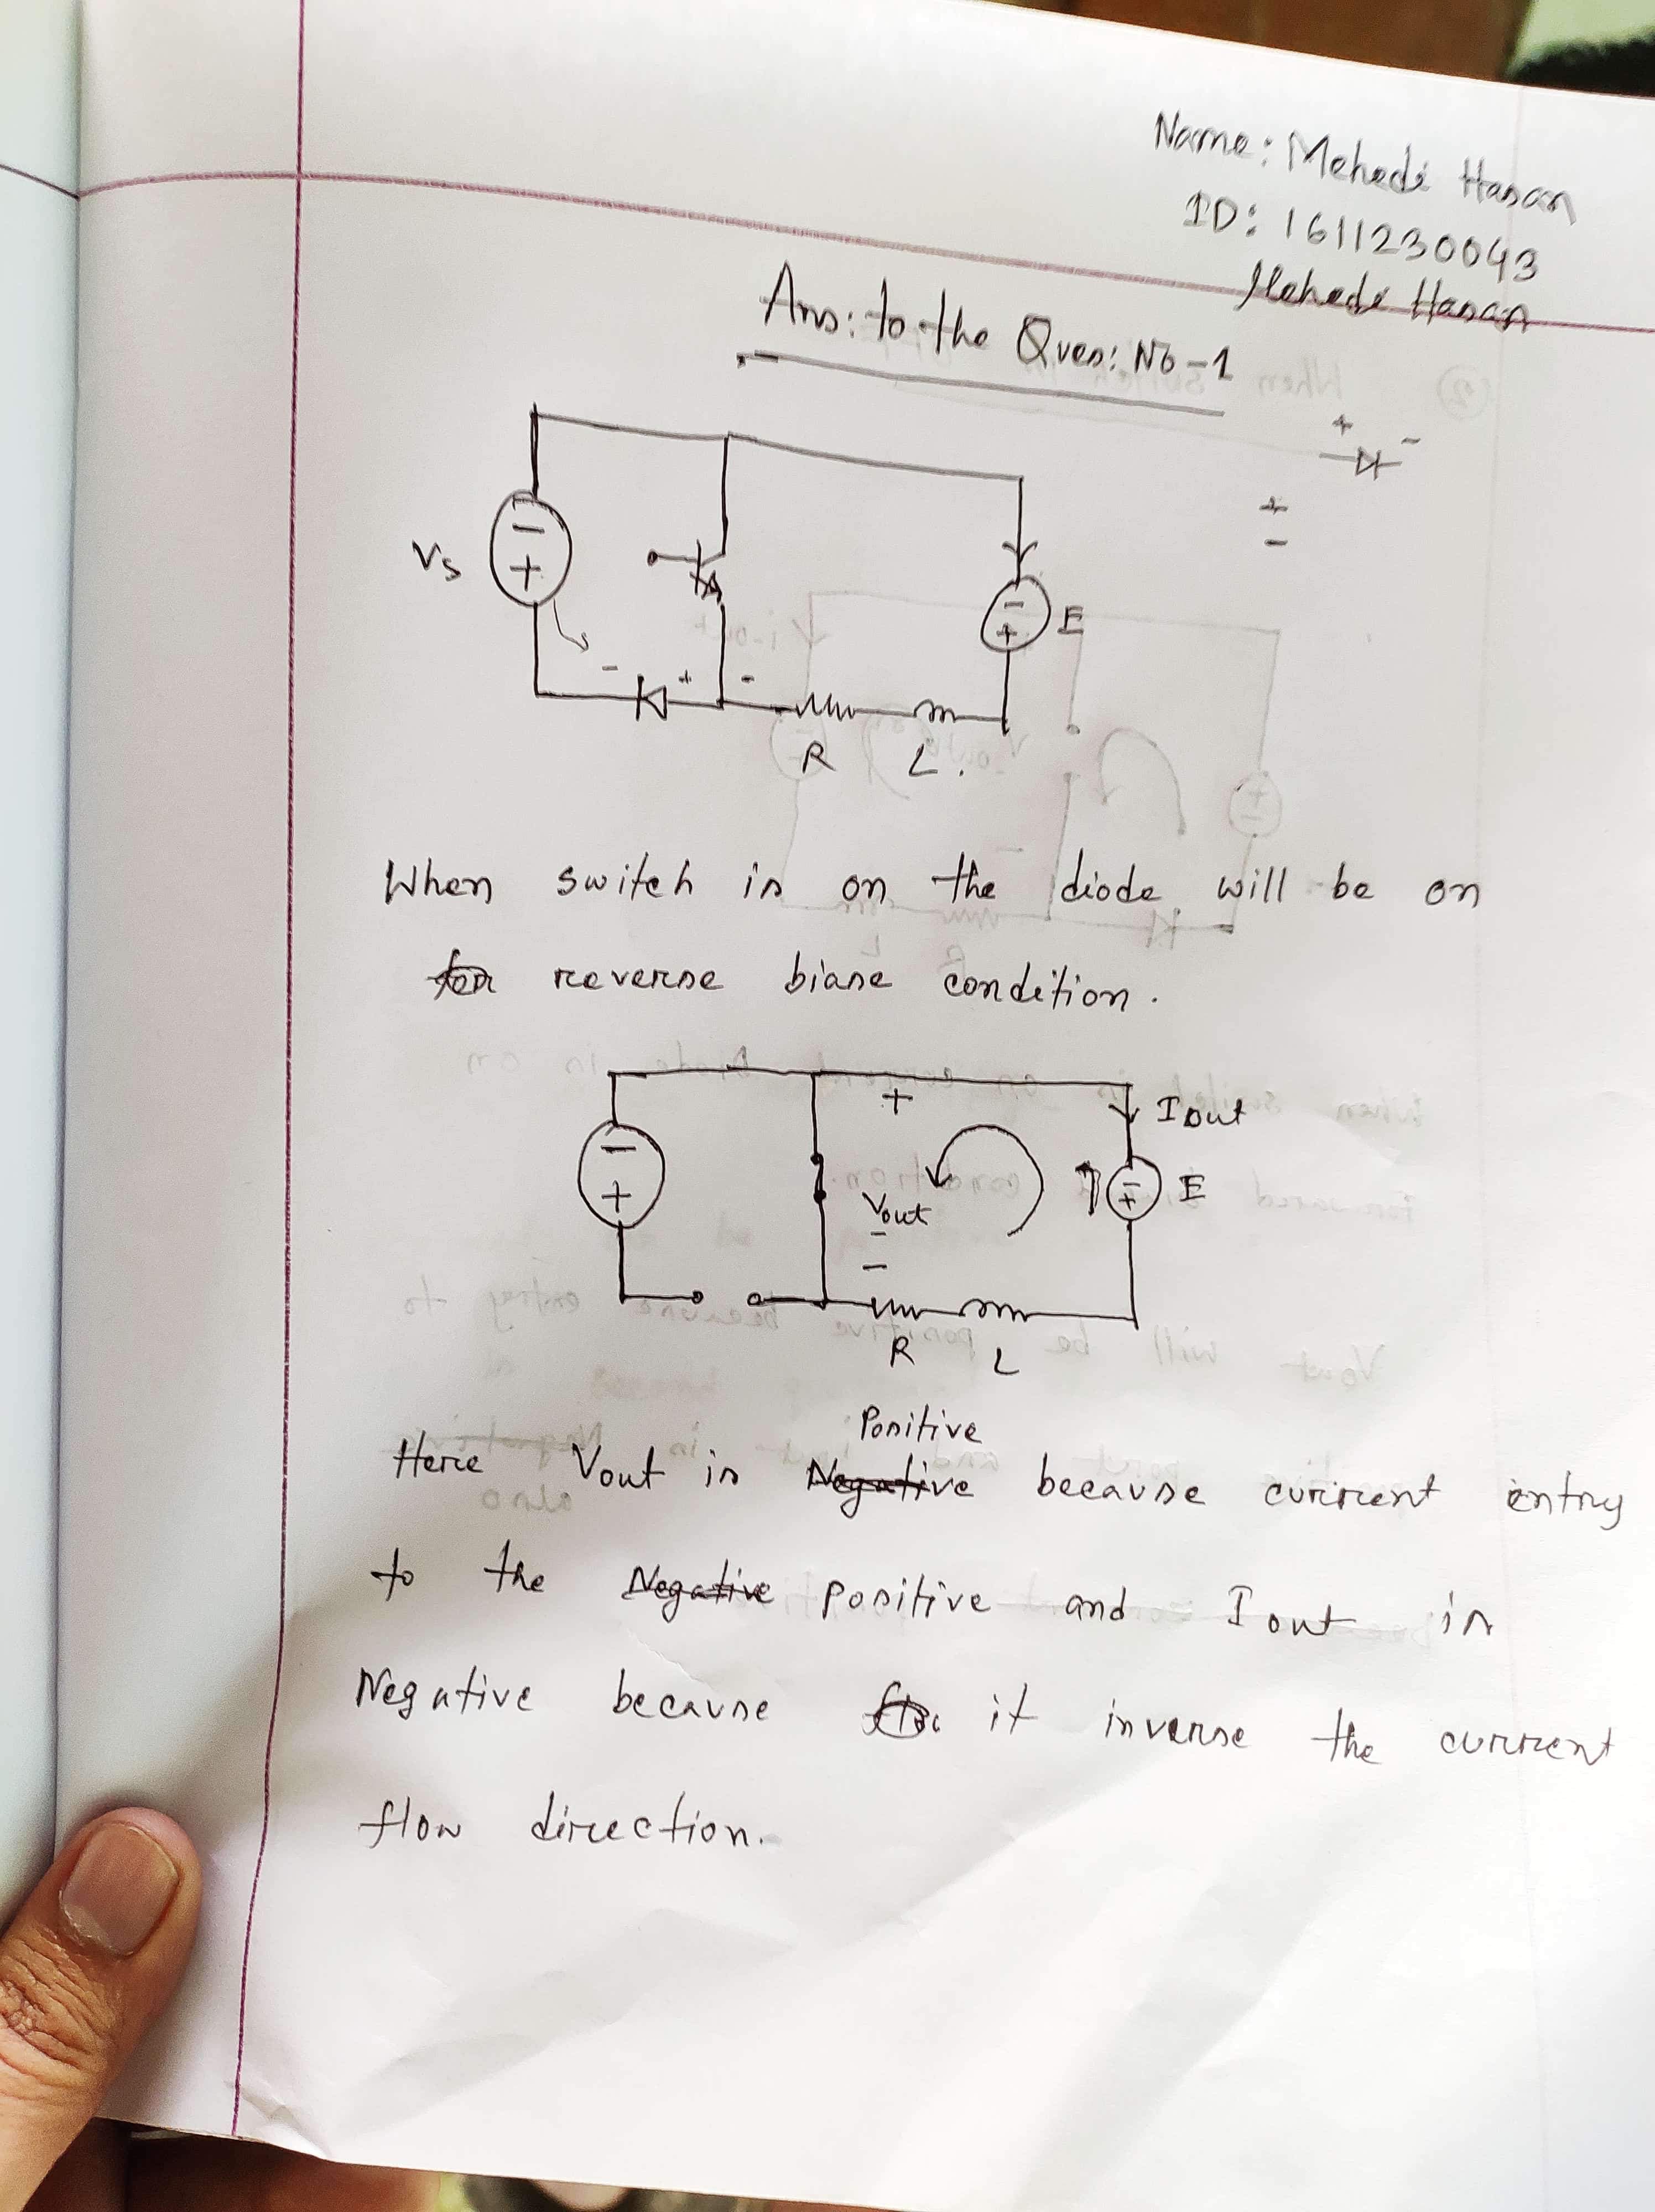 Name: Mehedi Hasan
ID: 1611230043
Mehedi Hasan
Ans: to the Ques: No-1
+ -
+
-
-
+
Vs
-
+
E
- + -
R L.
When switch is on the diode will be on
reverse biase condition.
+
I out
-
+
Vout
-
+
E
-
R L
Positive
Here Vout is Negative because current entry
to the Negative positive and I out is
Negative because it inverse the current
flow direction.